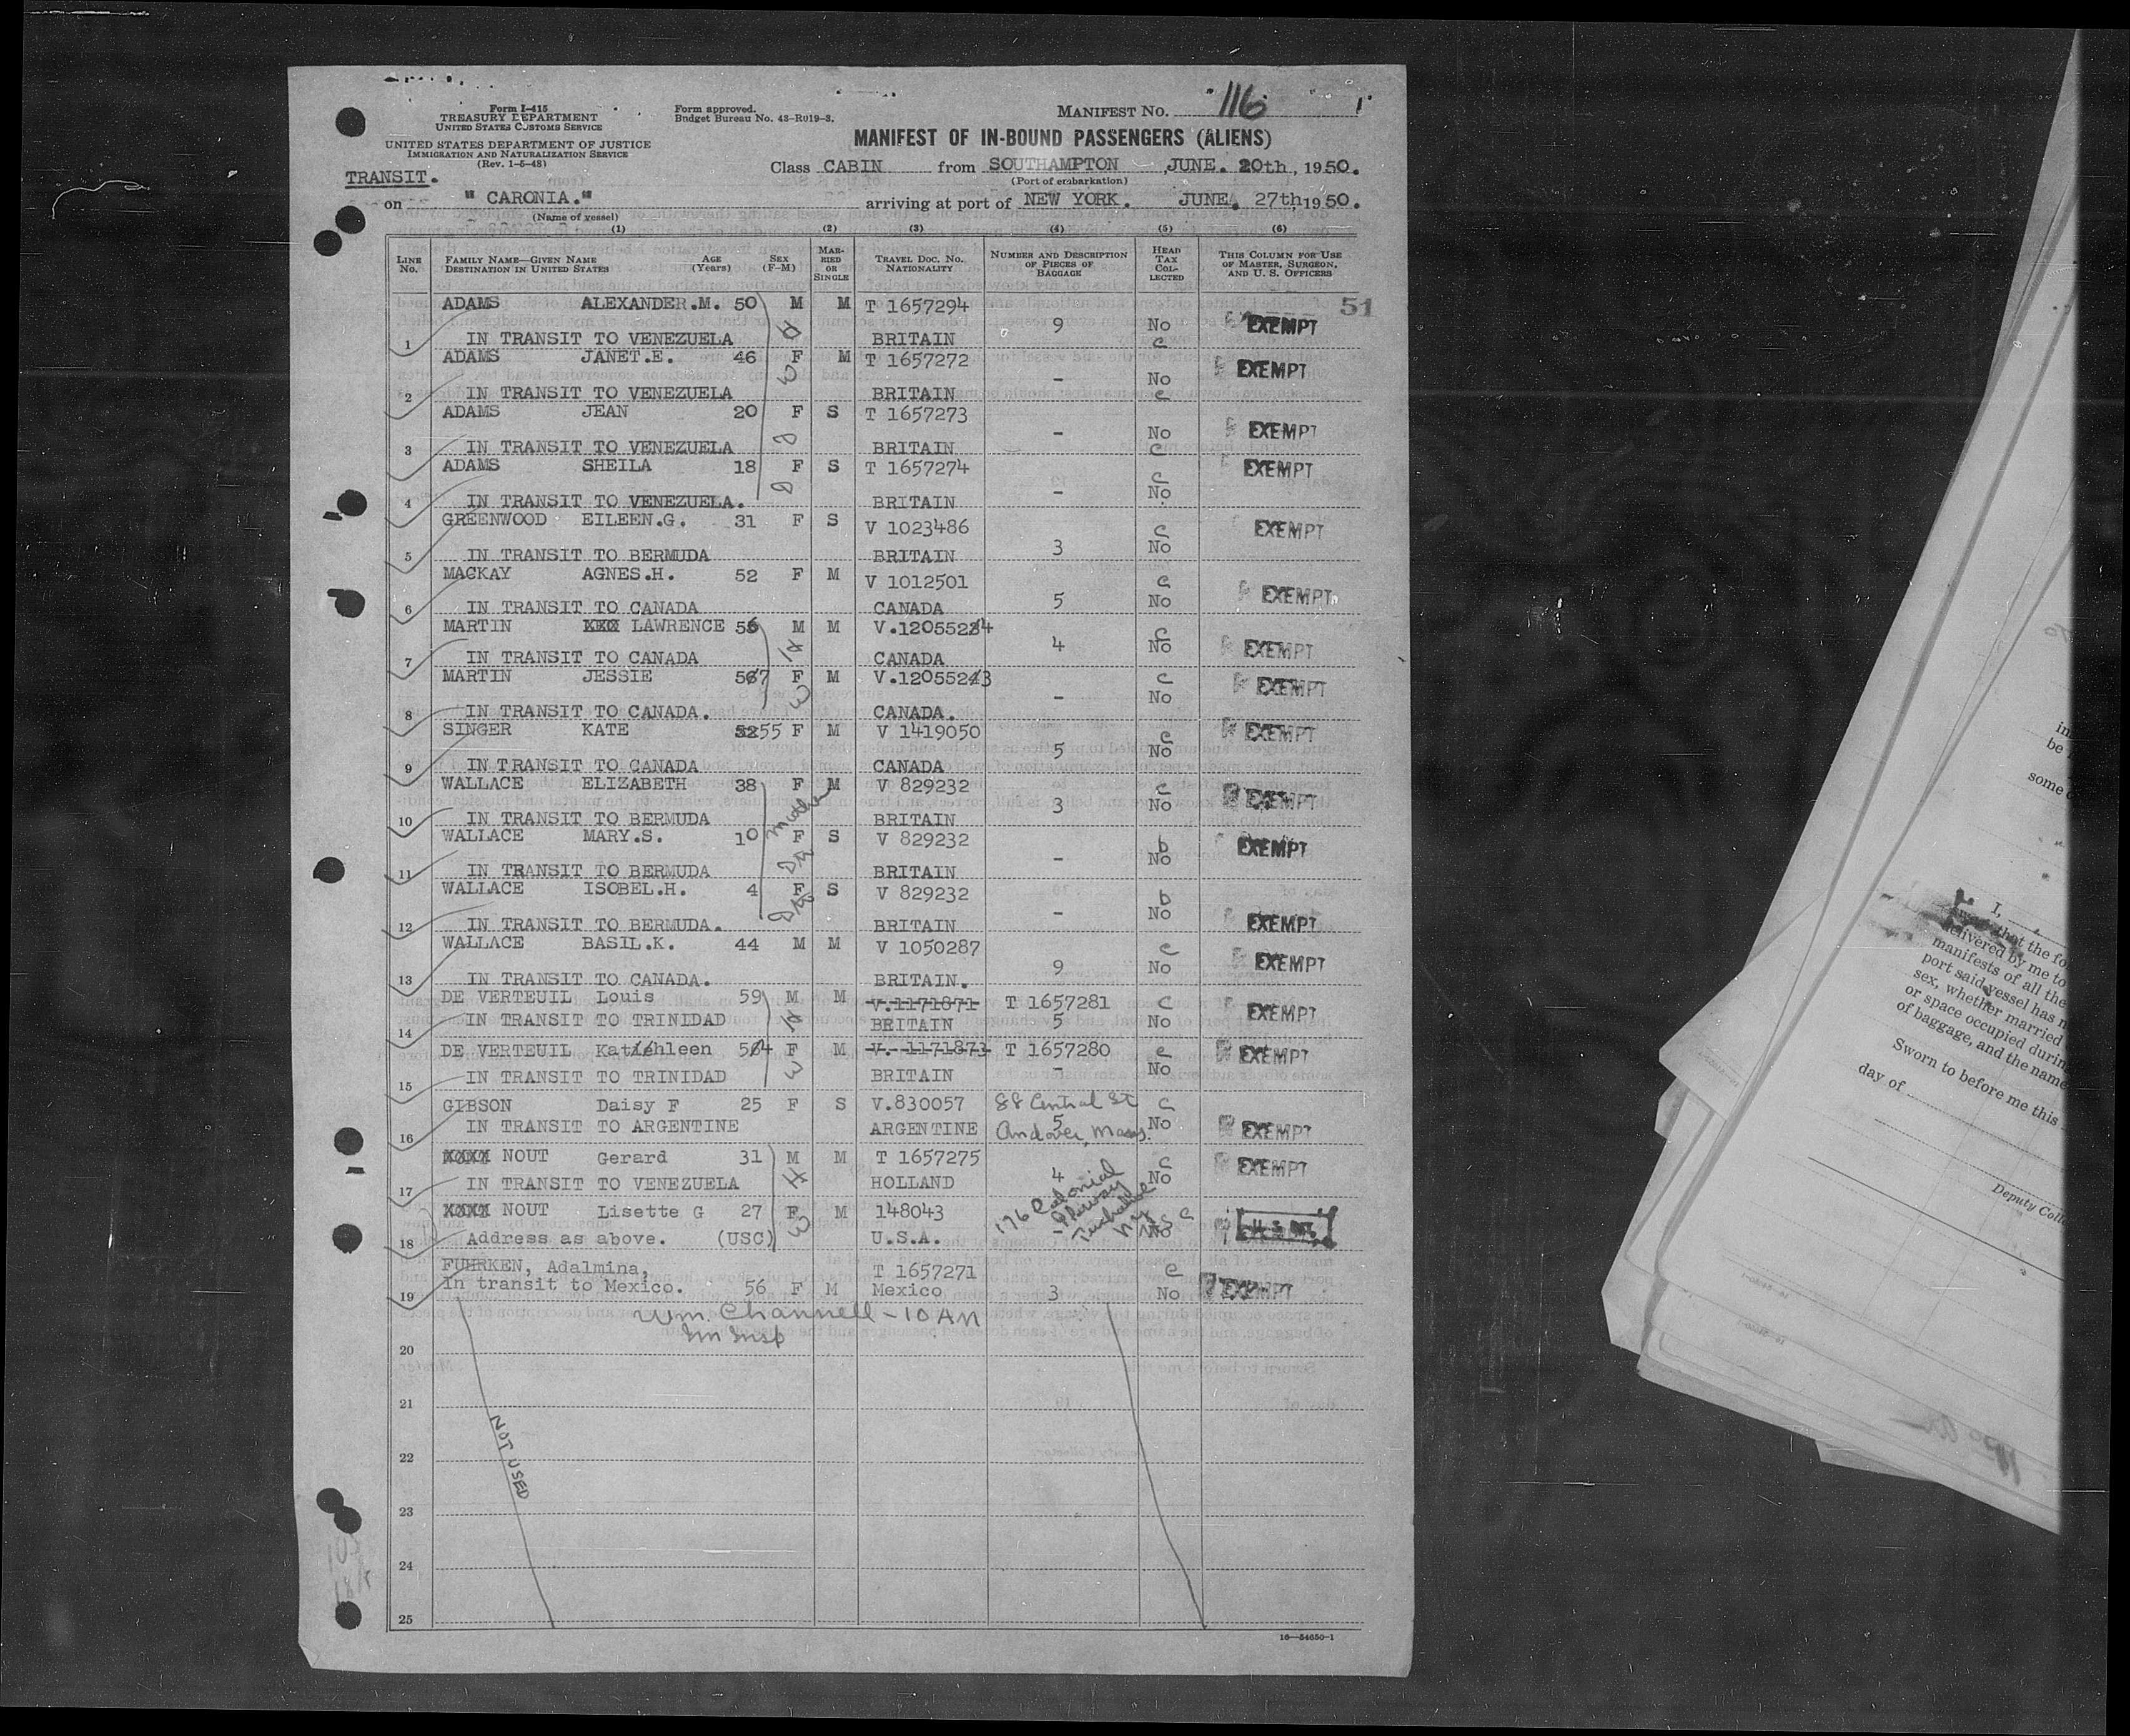 Form I-415
TREASURY DEPARTMENT
UNITED STATES CUSTOMS SERVICE
UNITED STATES DEPARTMENT OF JUSTICE
IMMIGRATION AND NATURALIZATION SERVICE
(Rev. 1-5-48)
Form approved.
Budget Bureau No. 43-R019-3.
MANIFEST NO. 116
MANIFEST OF IN-BOUND PASSENGERS (ALIENS)
TRANSIT.
Class CABIN from SOUTHAMPTON, JUNE. 20th, 1950.
(Port of embarkation)
on "CARONIA." arriving at port of NEW YORK. JUNE. 27th 1950.
(Name of vessel)
(1) (2) (3) (4) (5) (6)
LINE No. FAMILY NAME—GIVEN NAME DESTINATION IN UNITED STATES AGE (Years) SEX (F-M) MARRIED OR SINGLE TRAVEL DOC. NO. NATIONALITY NUMBER AND DESCRIPTION OF PIECES OF BAGGAGE HEAD TAX COLLECTED THIS COLUMN FOR USE OF MASTER, SURGEON, AND U. S. OFFICERS
51
ADAMS ALEXANDER.M. 50 M M T 1657294
1 IN TRANSIT TO VENEZUELA H BRITAIN 9 No c EXEMPT
ADAMS JANET.E. 46 F M T 1657272
2 IN TRANSIT TO VENEZUELA W BRITAIN - No c EXEMPT
ADAMS JEAN 20 F S T 1657273
3 IN TRANSIT TO VENEZUELA D BRITAIN - No c EXEMPT
ADAMS SHEILA 18 F S T 1657274
4 IN TRANSIT TO VENEZUELA. D BRITAIN - c No EXEMPT
GREENWOOD EILEEN.G. 31 F S V 1023486
5 IN TRANSIT TO BERMUDA BRITAIN 3 c No EXEMPT
MACKAY AGNES.H. 52 F M V 1012501
6 IN TRANSIT TO CANADA CANADA 5 c No EXEMPT
MARTIN LAWRENCE 56 M M V.1205524
7 IN TRANSIT TO CANADA H CANADA 4 c No EXEMPT
MARTIN JESSIE 57 F M V.1205523
8 IN TRANSIT TO CANADA. W CANADA. - c No EXEMPT
SINGER KATE 55 F M V 1419050
9 IN TRANSIT TO CANADA CANADA 5 c No EXEMPT
WALLACE ELIZABETH 38 F M V 829232
10 IN TRANSIT TO BERMUDA Mother BRITAIN 3 c No EXEMPT
WALLACE MARY.S. 10 F S V 829232
11 IN TRANSIT TO BERMUDA Da BRITAIN - b No EXEMPT
WALLACE ISOBEL.H. 4 F S V 829232
12 IN TRANSIT TO BERMUDA. Da BRITAIN - b No EXEMPT
WALLACE BASIL.K. 44 M M V 1050287
13 IN TRANSIT TO CANADA. BRITAIN. 9 c No EXEMPT
DE VERTEUIL Louis 59 M M V.1171871 T 1657281
14 IN TRANSIT TO TRINIDAD H BRITAIN 5 c No EXEMPT
DE VERTEUIL Kathleen 54 F M V. 1171873 T 1657280
15 IN TRANSIT TO TRINIDAD W BRITAIN - c No EXEMPT
GIBSON Daisy F 25 F S V.830057 88 Central St
16 IN TRANSIT TO ARGENTINE ARGENTINE 5 Andover, Mass. c No EXEMPT
XXXX NOUT Gerard 31 M M T 1657275
17 IN TRANSIT TO VENEZUELA H HOLLAND 4 c No EXEMPT
XXXX NOUT Lisette G 27 F M 148043 176 Colonial
18 Address as above. (USC) W U.S.A. - NY c No
FUHRKEN, Adalmina, T 1657271
19 In transit to Mexico. 56 F M Mexico 3 c No EXEMPT
Wm. Channell - 10 AM
Im Insp
20
21
22
23
24
25
NOT USED
16—54650-1
in
be
some
I,
that the fo
delivered by me to
manifests of all the
port said vessel has n
sex, whether married
or space occupied durin
of baggage, and the name
Sworn to before me this
day of
Deputy Coll